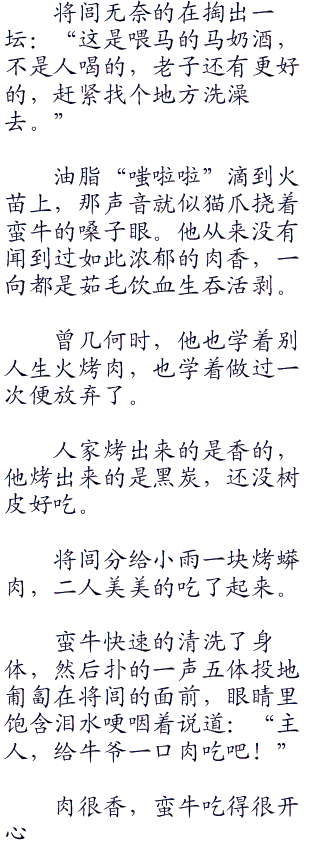 将闾无奈的在掏出一
坛：“这是喂马的马奶酒，
不是人喝的，老子还有更好
的，赶紧找个地方洗澡
去。”
油脂“嗤啦啦”滴到火
苗上，那声音就似猫爪挠着
蛮牛的嗓子眼。他从来没有
闻到过如此浓郁的肉香，一
向都是茹毛饮血生吞活剥。
曾几何时，他也学着别
人生火烤肉，也学着做过一
次便放弃了。
人家烤出来的是香的，
他烤出来的是黑炭，还没树
皮好吃。
将闾分给小雨一块烤蟒
肉，二人美美的吃了起来。
蛮牛快速的清洗了身
体，然后扑的一声五体投地
匍匐在将闾的面前，眼睛里
饱含泪水哽咽着说道：“主
人，给牛爷一口肉吃吧！”
肉很香，蛮牛吃得很开
心